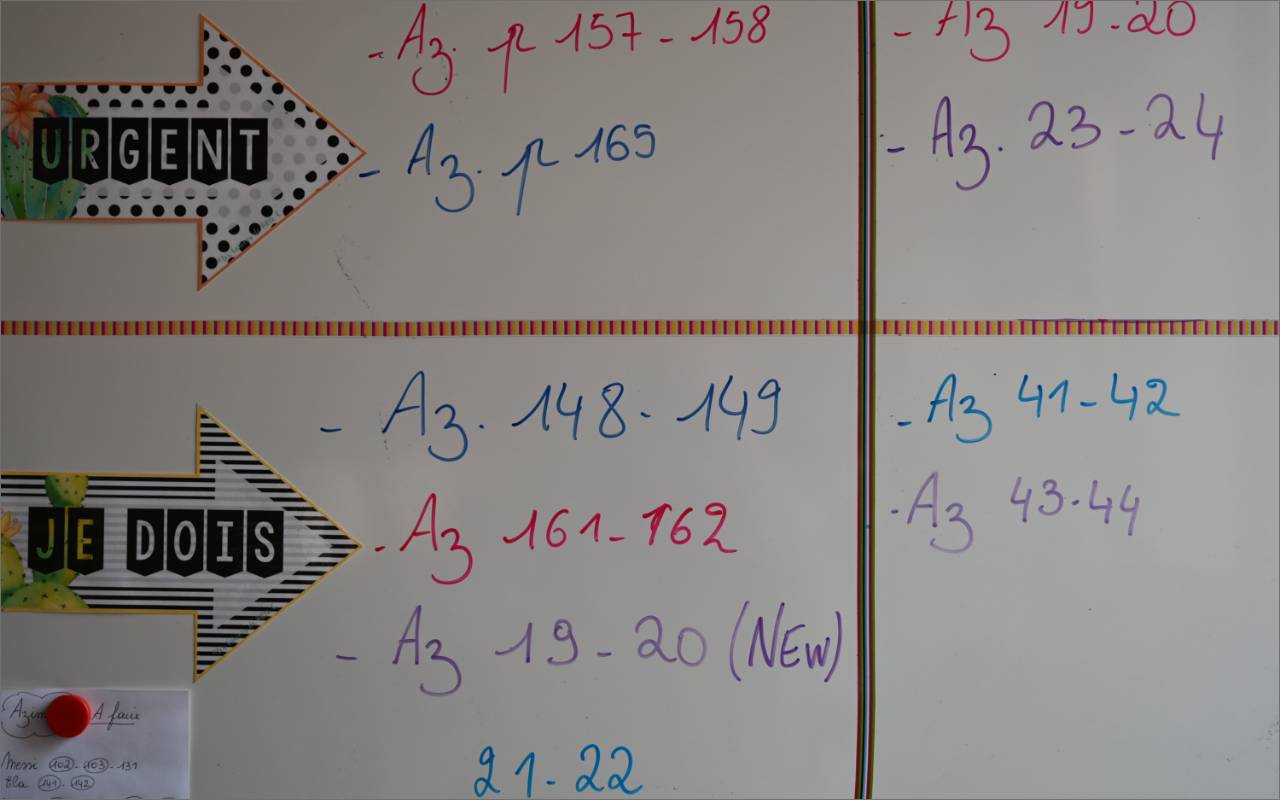 URGENT
- Az. p 157 - 158
- Az. p 165
- Az 19-20
- Az. 23 - 24
JE DOIS
- Az. 148 - 149
- Az 161 - 162
- Az 19 - 20 (NEW)
21 - 22
- Az 41 - 42
- Az 43 - 44
A faire
Messi 102 - 103 - 131
Ela 141 - 142